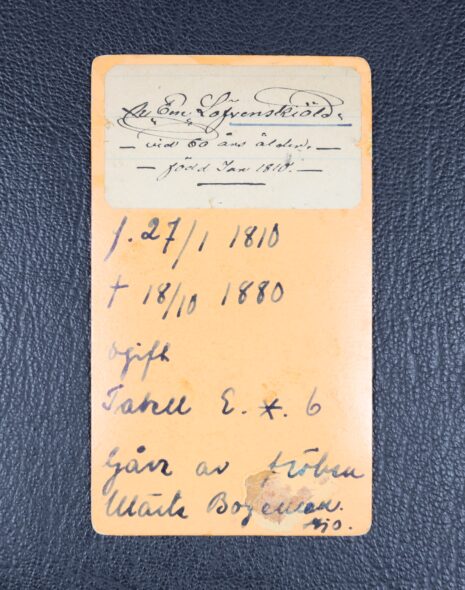 Em Löfvenskiöld
— vid 60 års ålder. —
— född Jan 1810. —
f. 27/1 1810
† 18/10 1880
ogift
Tabell E. *. 6
Gåva av fröken
Märta Bogeman.